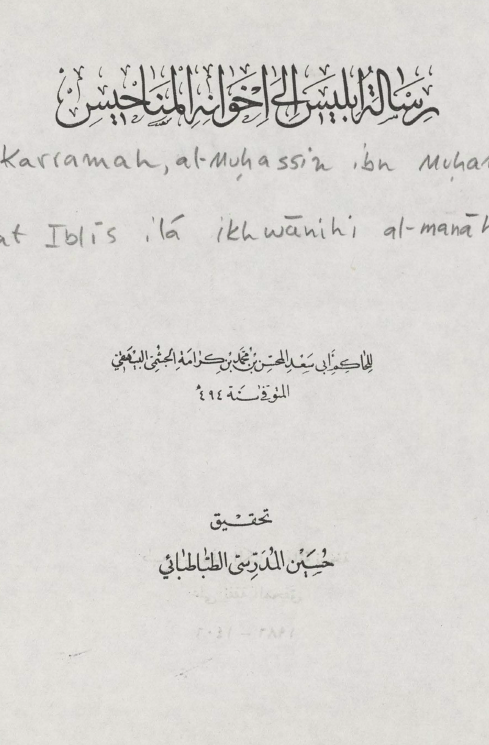 رسالة ابليس إلى اخوانه المناحيس
Karramah, al-Muḥassin ibn Muḥa
at Iblīs ilá ikhwānihi al-manāḥ
للحاكم أبي سعد المحسن بن محمد بن كرامة الجشمي البيهقي
المتوفى سنة ٤٩٤ هـ
تحقيق
حسين المدرسي الطباطبائي